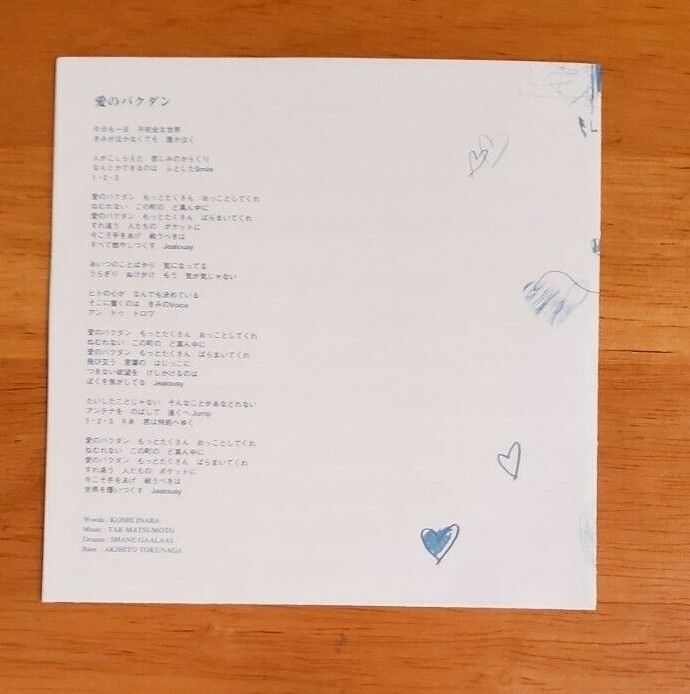 愛のバクダン
今日も一日　不完全な世界
きみが泣かなくても　誰か泣く
人がこしらえた　悲しみのからくり
なんとかできるのは　ふとしたSmile
1・2・3
愛のバクダン　もっとたくさん　おっことしてくれ
ねむれない　この町の　ど真ん中に
愛のバクダン　もっとたくさん　ばらまいてくれ
すれ違う　人たちの　ポケットに
今こそ手をあげ　戦うべきは
すべて燃やしつくす　Jealousy
あいつのことばかり　気になってる
うらぎり　ぬけがけ　もう　気が気じゃない
ヒトの心が　なんでも決めている
そこに響くのは　きみのVoice
アン　ドゥ　トロワ
愛のバクダン　もっとたくさん　おっことしてくれ
ねむれない　この町の　ど真ん中に
愛のバクダン　もっとたくさん　ばらまいてくれ
飛び交う　言葉の　はじっこに
つきない欲望を　けしかけるのは
ぼくを焦がしてる　Jealousy
たいしたことじゃない　そんなことがあなどれない
アンテナを　のばして　遠くへJump
1・2・3　さあ　君は何処へゆく
愛のバクダン　もっとたくさん　おっことしてくれ
ねむれない　この町の　ど真ん中に
愛のバクダン　もっとたくさん　ばらまいてくれ
すれ違う　人たちの　ポケットに
今こそ手をあげ　戦うべきは
世界を覆いつくす　Jealousy
Words : KOSHI INABA
Music : TAK MATSUMOTO
Drums : SHANE GAALAAS
Bass : AKIHITO TOKUNAGA